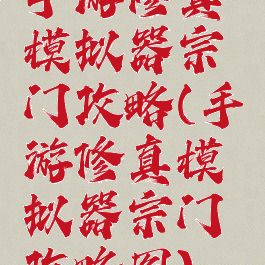 手游修真
模拟器宗
门攻略(手
游修真模
拟器宗门
攻略图)